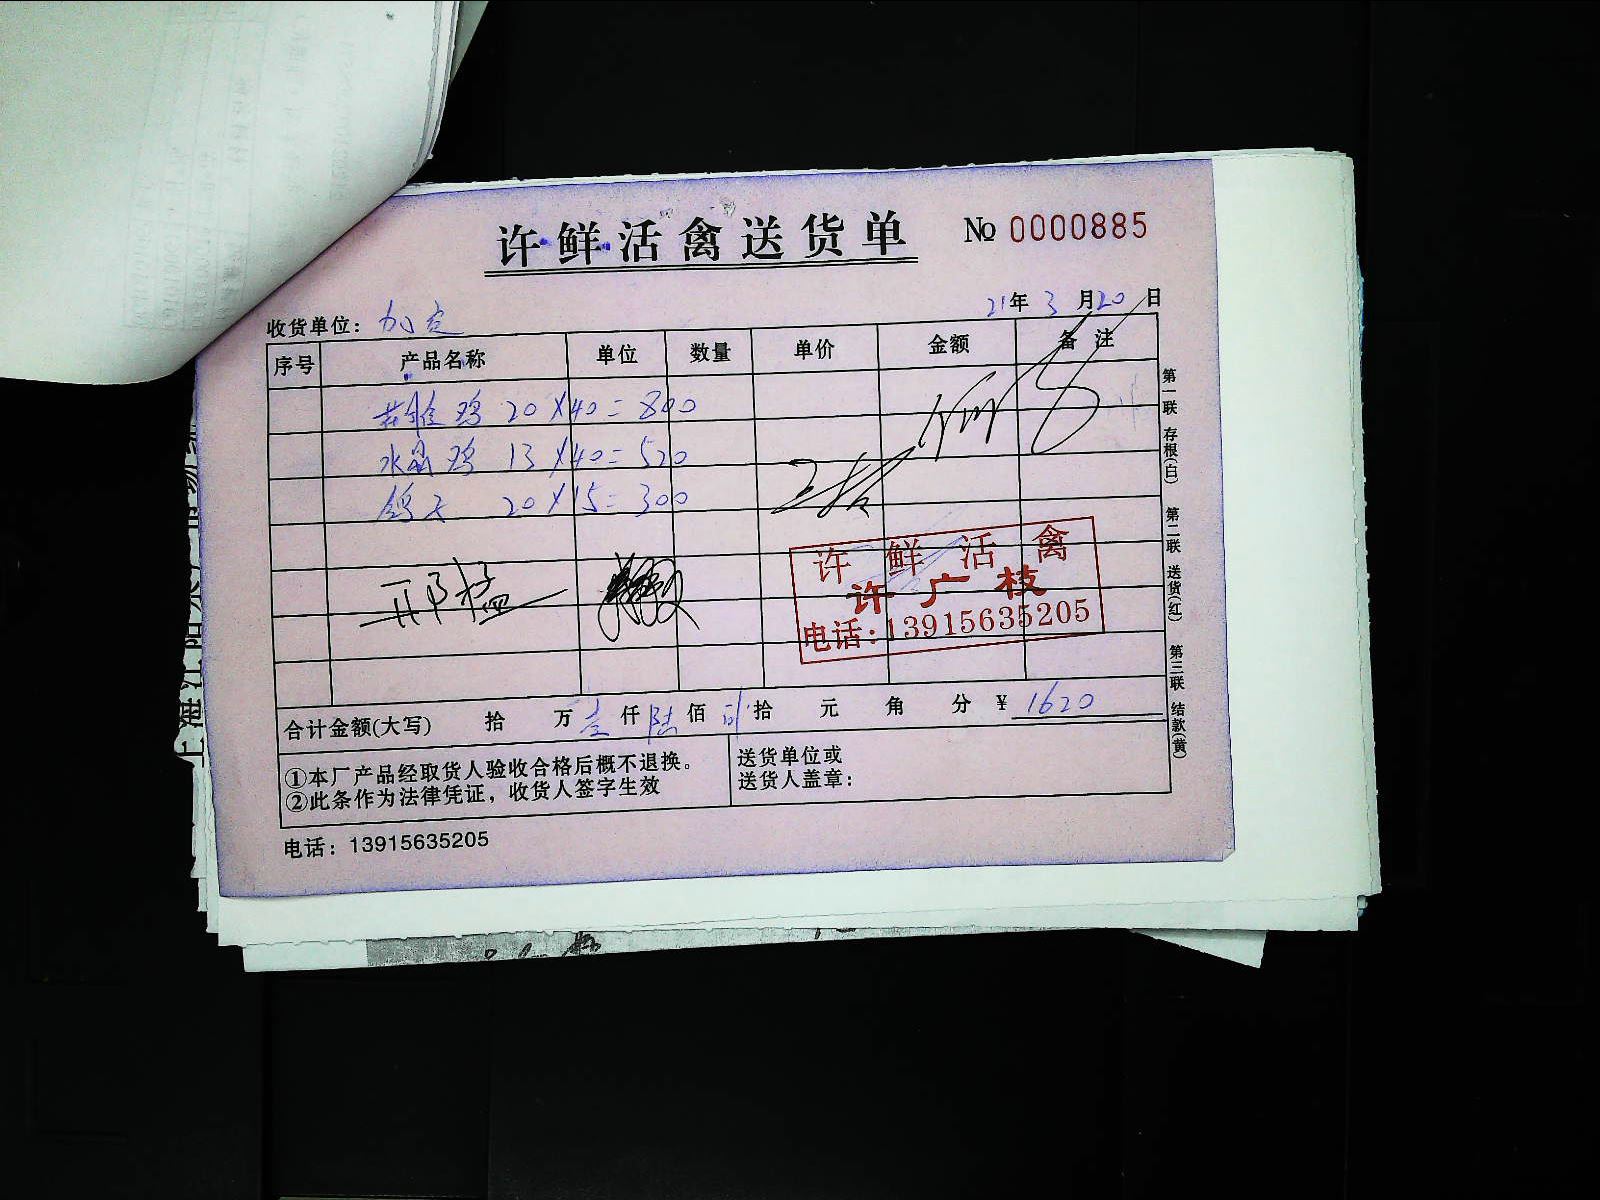 许鲜活禽送货单 No 0000885
21年 3月20日
收货单位：加定
序号 产品名称 单位 数量 单价 金额 备注
鸡 20×40=800
水晶鸡 13×40=520
鸽子 20×15=300
邓猛
许鲜活禽
许广枝
电话：13915635205
合计金额(大写) 拾 万壹仟陆佰贰拾 元 角 分 ¥ 1620
①本厂产品经取货人验收合格后概不退换。
②此条作为法律凭证，收货人签字生效
送货单位或
送货人盖章：
电话：13915635205
第一联 存根(白) 第二联 送货(红) 第三联 结款(黄)